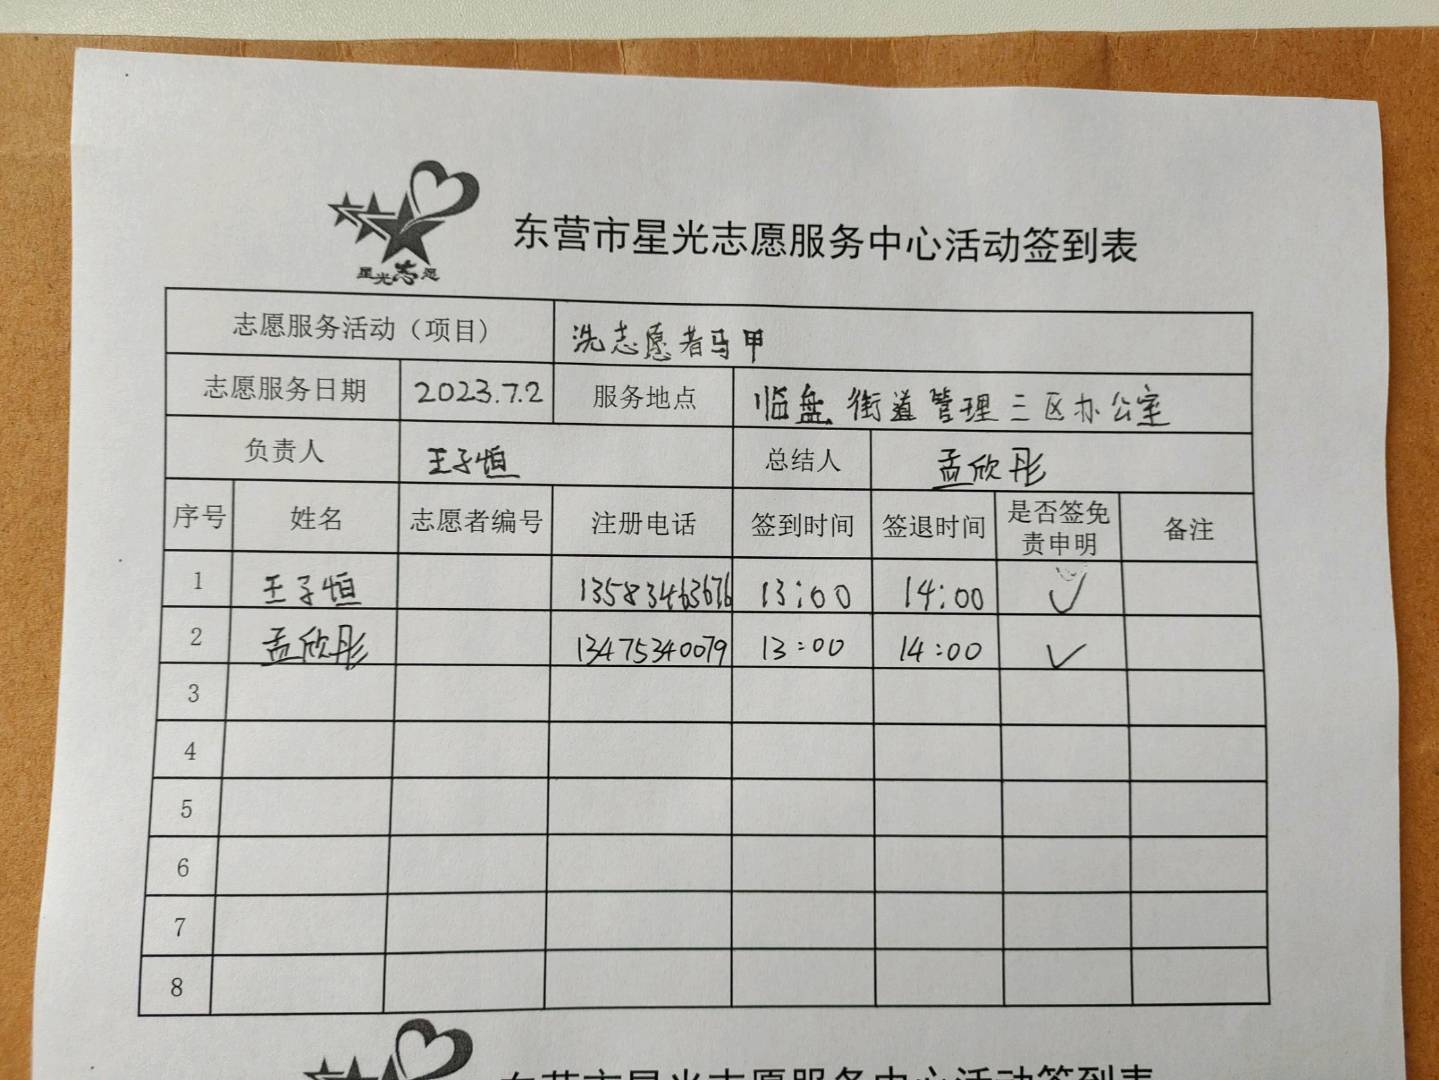 星光志愿
东营市星光志愿服务中心活动签到表
志愿服务活动（项目） 洗志愿者马甲
志愿服务日期 2023.7.2 服务地点 临盘街道管理三区办公室
负责人 王子恒 总结人 孟欣彤
序号 姓名 志愿者编号 注册电话 签到时间 签退时间 是否签免责申明 备注
1 王子恒 13583463676 13:00 14:00 ✓
2 孟欣彤 13475340079 13:00 14:00 ✓
3
4
5
6
7
8
东营市星光志愿服务中心活动签到表